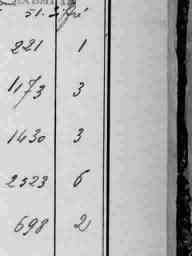 221 1
1173 3
1430 3
2523 6
698 2